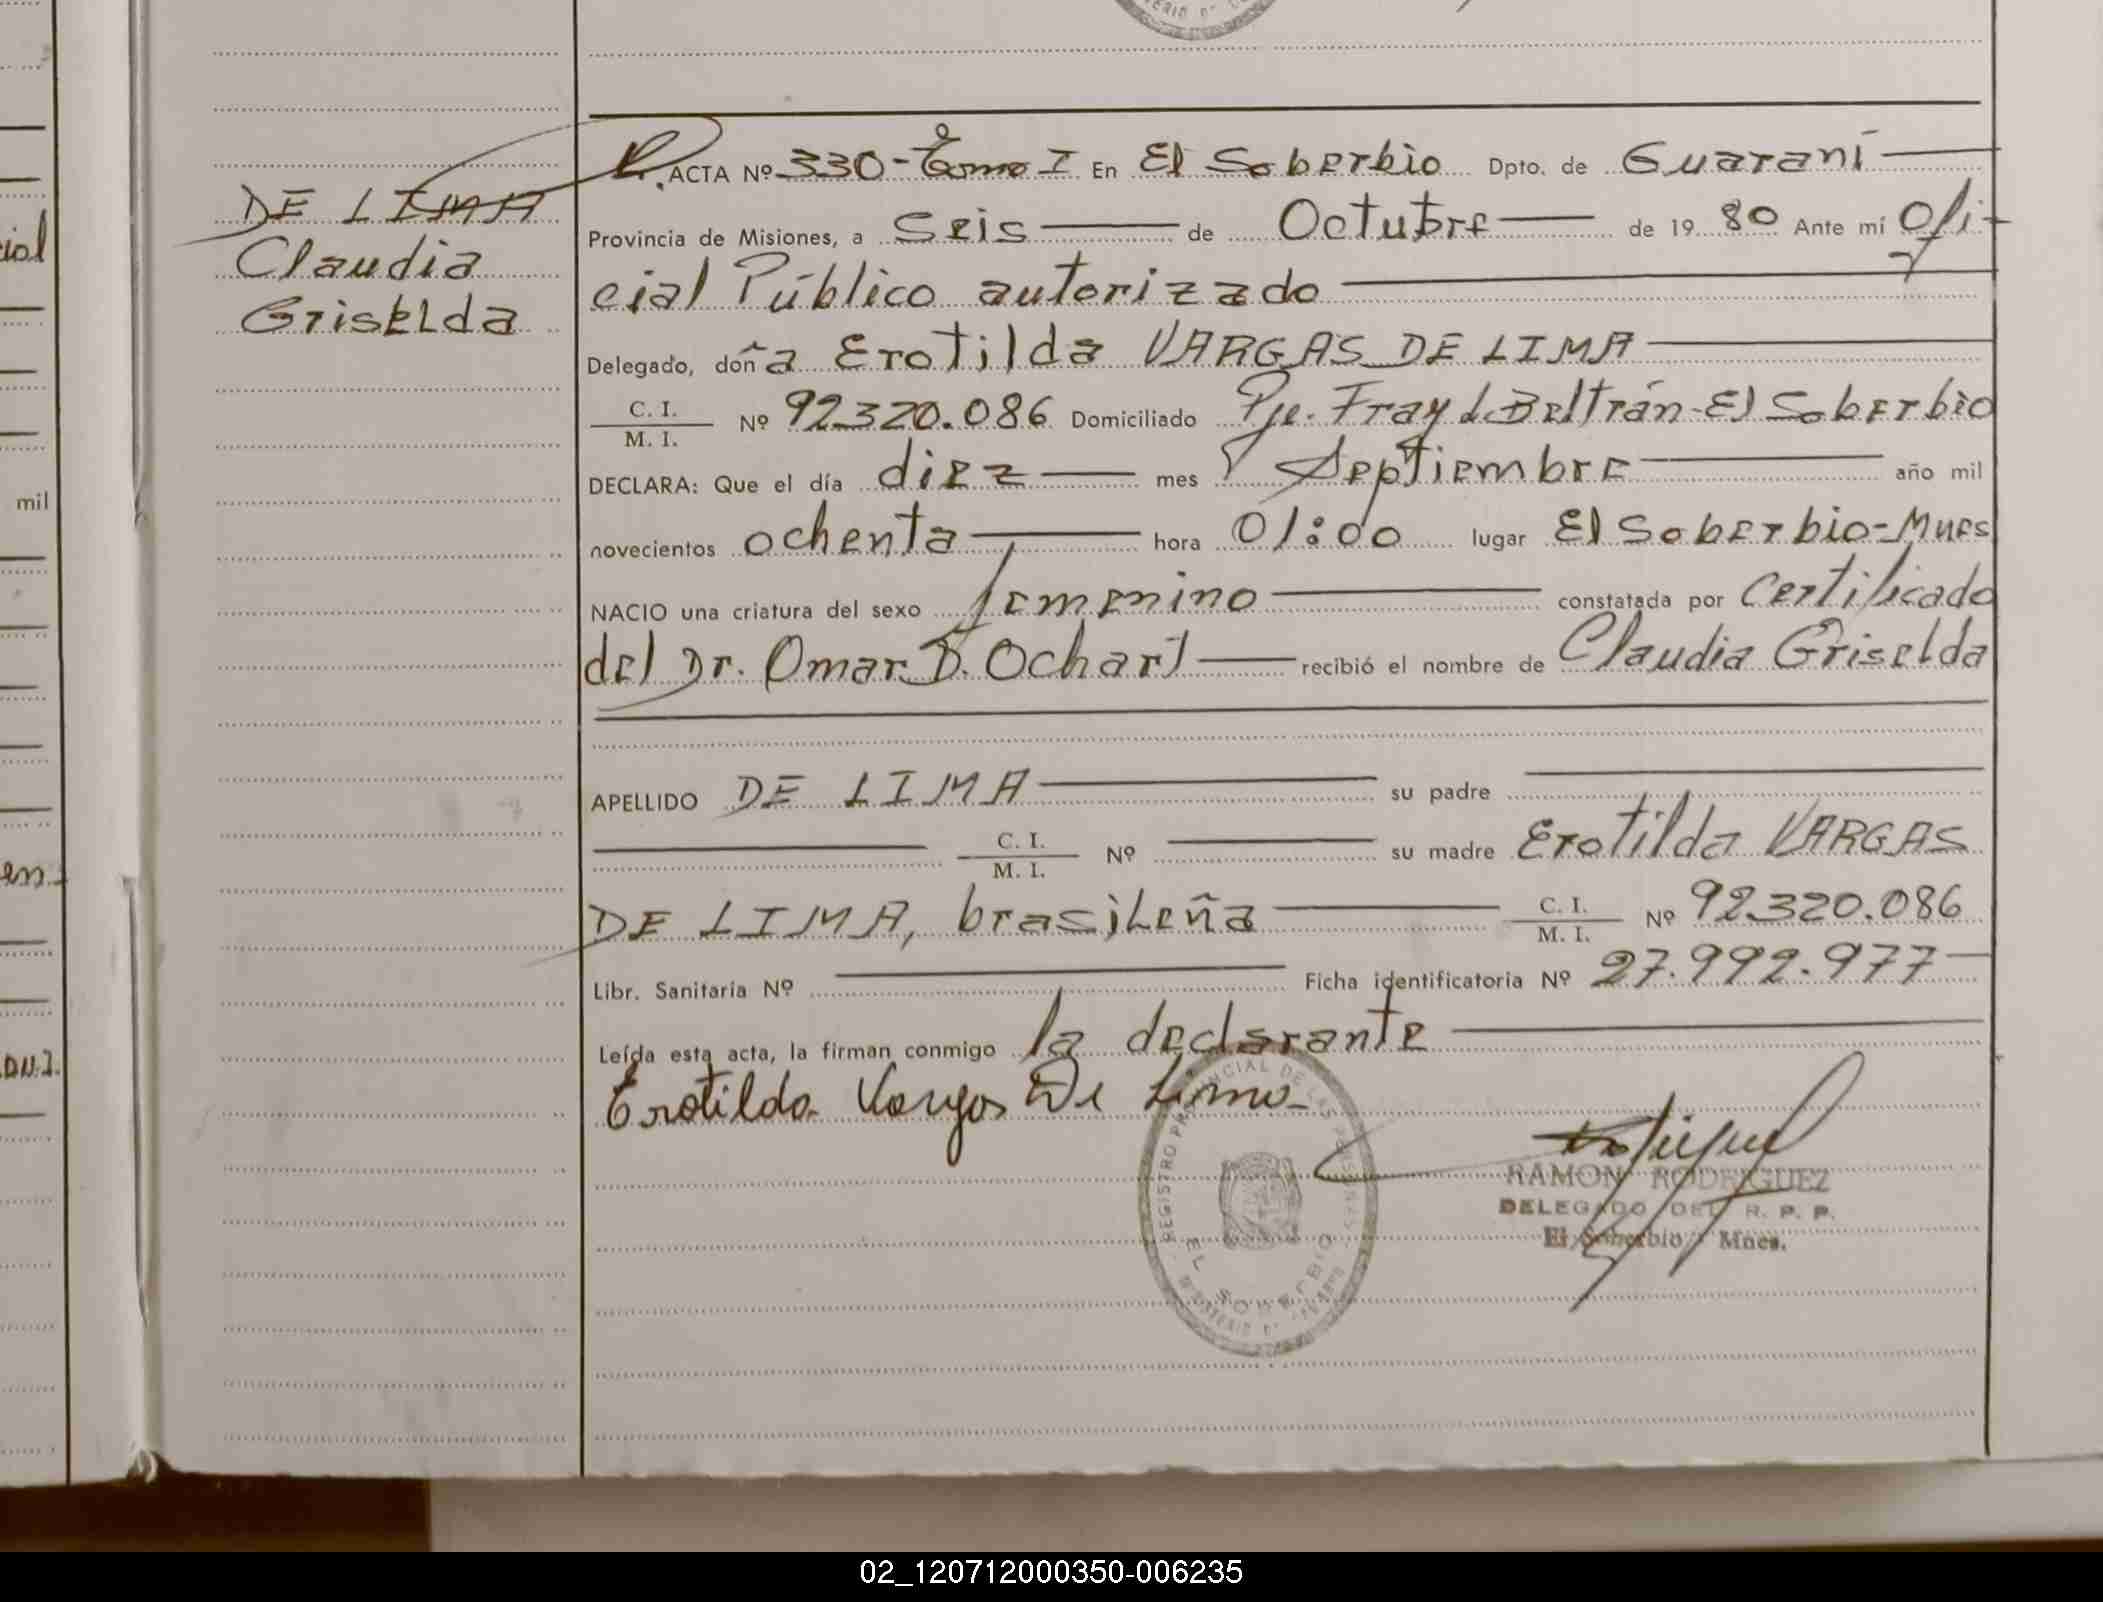 DE LIMA
Claudia
Griselda
ACTA Nº 330-Tomo I En El Soberbio Dpto. de Guaraní
Provincia de Misiones, a Seis de Octubre de 1980 Ante mí Ofi-
cial Público autorizado
Delegado, doña Erotilda VARGAS DE LIMA
C. I.
M. I. Nº 92.320.086 Domiciliado Pje. Fray L Beltrán-El Soberbio
DECLARA: Que el día diez mes Septiembre año mil
novecientos ochenta hora 01:00 lugar El Soberbio-Mnes
NACIO una criatura del sexo femenino constatada por Certificado
del Dr. Omar D. Ochart recibió el nombre de Claudia Griselda
APELLIDO DE LIMA su padre
C. I.
M. I. Nº su madre Erotilda VARGAS
DE LIMA, brasileña C. I.
M. I. Nº 92.320.086
Libr. Sanitaria Nº Ficha identificatoria Nº 27.992.977
Leída esta acta, la firman conmigo la declarante
Erotilda Vargas De Lima
REGISTRO PROVINCIAL DE LAS PERSONAS
EL SOBERBIO
RAMON RODRIGUEZ
DELEGADO DEL R. P. P.
El Soberbio Mnes.
cial
mil
en
DN.I.
02_120712000350-006235